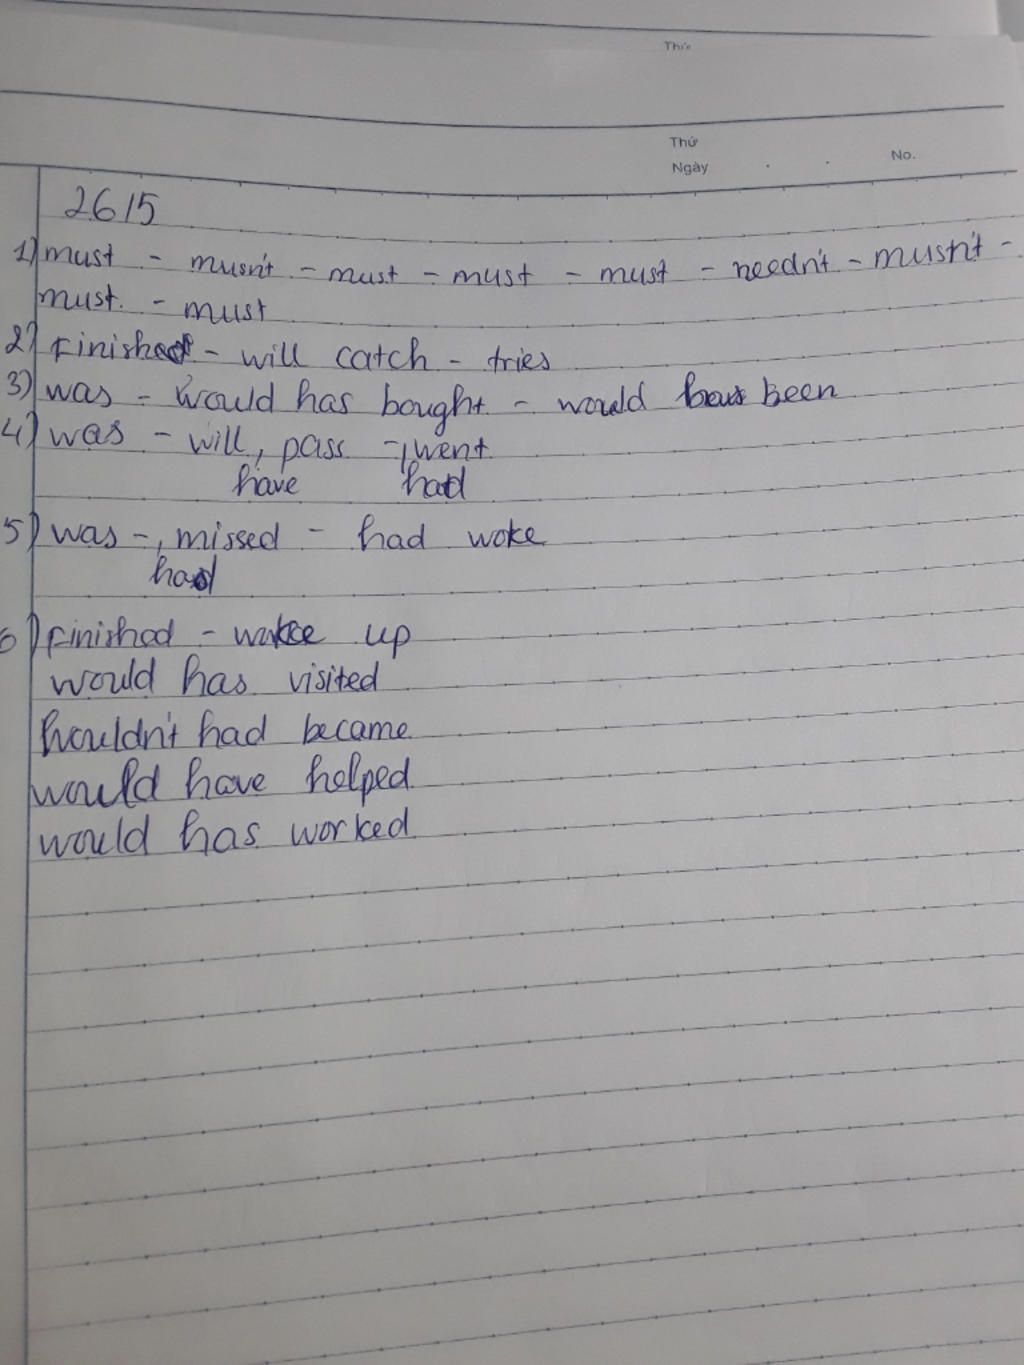 Thứ
Thứ
Ngày No.
26/5
1) must - musn't - must - must - must - needn't - musn't -
must - must
2) Finished - will catch - tries
3) was - would has bought - would been
4) was - will, pass -, went
have had
5) was -, missed - had woke
had
6) Finished - wake up
would has visited
wouldn't had became
would have helped
would has worked